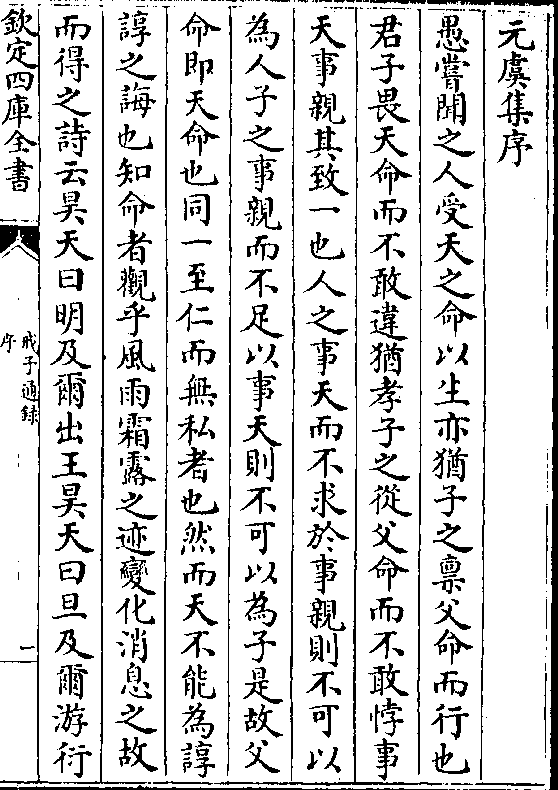 元虞集序
愚嘗聞之人受天之命以生亦猶子之禀父命而行也
君子畏天命而不敢違猶孝子之從父命而不敢悖事
天事親其致一也人之事天而不求於事親則不可以
為人子之事親而不足以事天則不可以為子是故父
命即天命也同一至仁而無私者也然而天不能為諄
諄之誨也知命者觀乎風雨霜露之迹變化消息之故
而得之詩云昊天曰明及爾出王昊天曰旦及爾游衍
欽定四庫全書
戒子通録
序
一